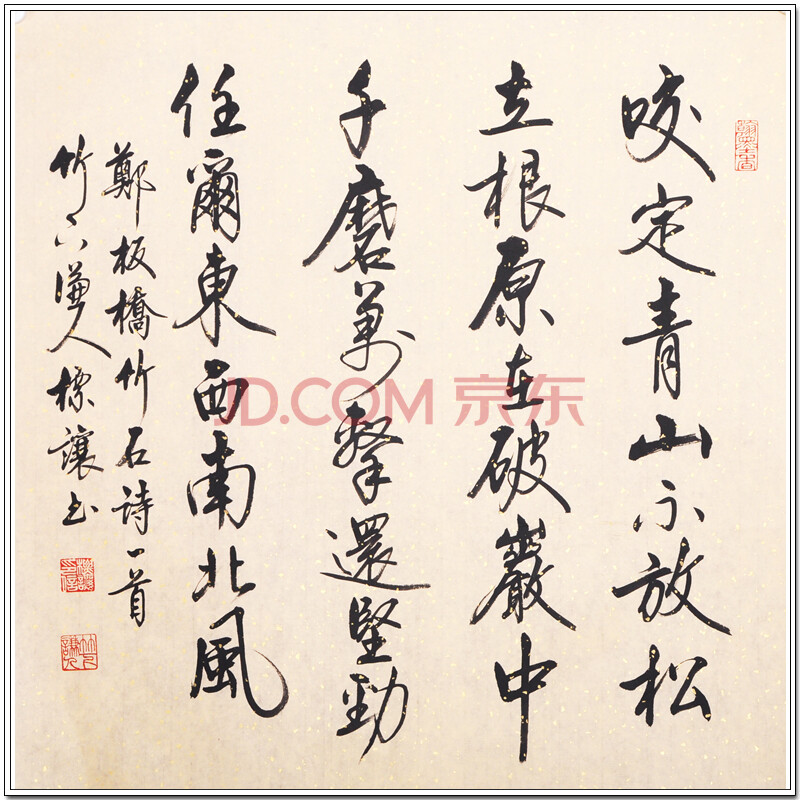 咬定青山不放松
立根原在破巖中
千磨萬擊還堅勁
任爾東西南北風
鄭板橋竹石詩一首
竹下謙人標讓书
JD.COM 京东